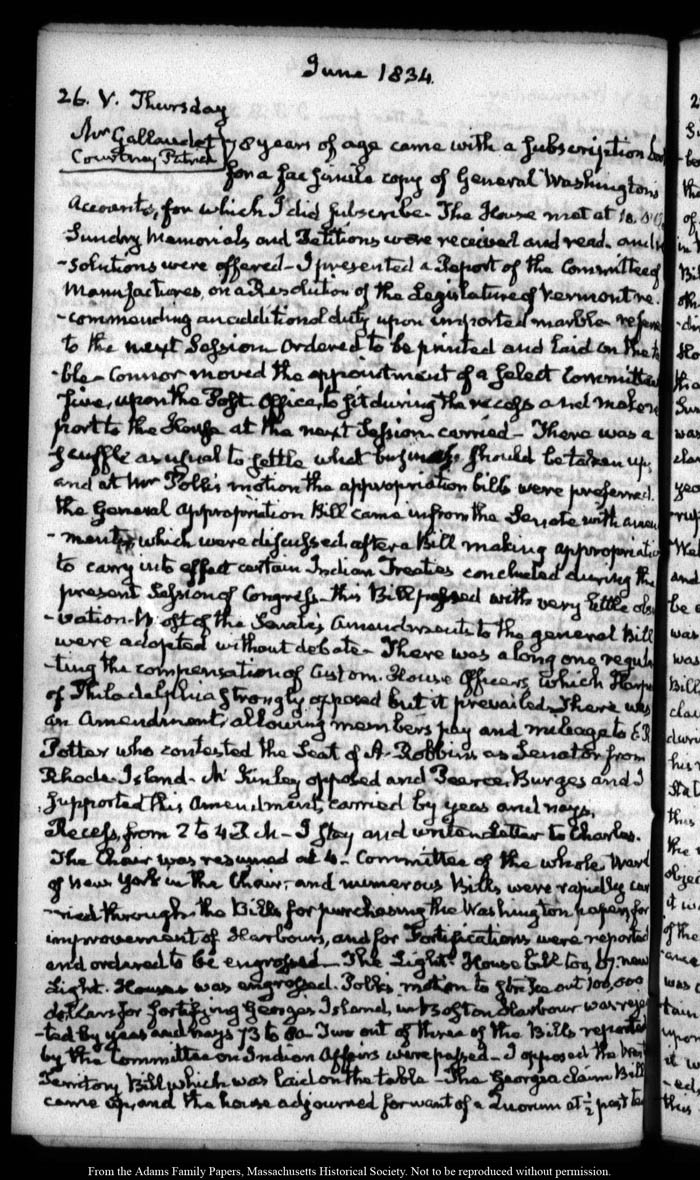 June 1834.
26. V. Thursday
Mr Gallaudet
Courtney Patrick
78 years of age came with a subscription
for a fac simile copy of General Washington's
Accounts, for which I did subscribe. The House met at 10.
Sundry Memorials and Petitions were received and read. and
-solutions were offered- I presented a Report of the Committee of
Manufactures, on a Resolution of the Legislature of Vermont re-
-commending an additional duty upon imported marble-
to the next Session. Ordered to be printed and laid on the ta
-ble- Connor moved the appointment of a select Committee
five, upon the Post Office, to sit during the recess and make re
port to the House at the next Session. carried- There was a
scuffle as usual to settle what business should be taken up,
and at Mr Polk's motion the appropriation bills were preferred.
the General appropriation Bill came in from the Senate with amend
-ments, which were discussed, after a Bill making appropriations
to carry into effect certain Indian Treaties concluded during the
present Session of Congress- this Bill passed with very little obser
-vation- Most of the Senate's Amendments to the general Bill
were adopted without debate- There was a long one regula
-ting the compensation of Custom-House Officers, which Harper
of Philadelphia strongly opposed but it prevailed. There was
an Amendment, allowing members pay and mileage to E R
Potter who contested the Seat of A. Robbins as Senator from
Rhode-Island- McKinley opposed and Pearce, Burges and I
supported this Amendment, carried by yeas and nays.
Recess, from 2 to 4 P.M- I stay and write a Letter to Charles.
The Chair was resumed at 4- Committee of the whole Ward
of New York in the Chair, and numerous Bills were rapidly car
-ried through. the Bills for purchasing the Washington papers, for
improvement of Harbours, and for Fortifications were reported
and ordered to be engrossed- The Light-House bill too, 57 new
Light-Houses was engrossed. Polk's motion to strike out 100,000
dollars for fortifying Georges Island, in Boston Harbour was rejec
-ted by yeas and nays 73 to 80. Two out of three of the Bills reported
by the Committee on Indian Affairs were passed- I opposed the West
Territory Bill which was laid on the table- The Georgia claim Bill
came up, and the house adjourned for want of a Quorum at ½ past ten
From the Adams Family Papers, Massachusetts Historical Society. Not to be reproduced without permission.